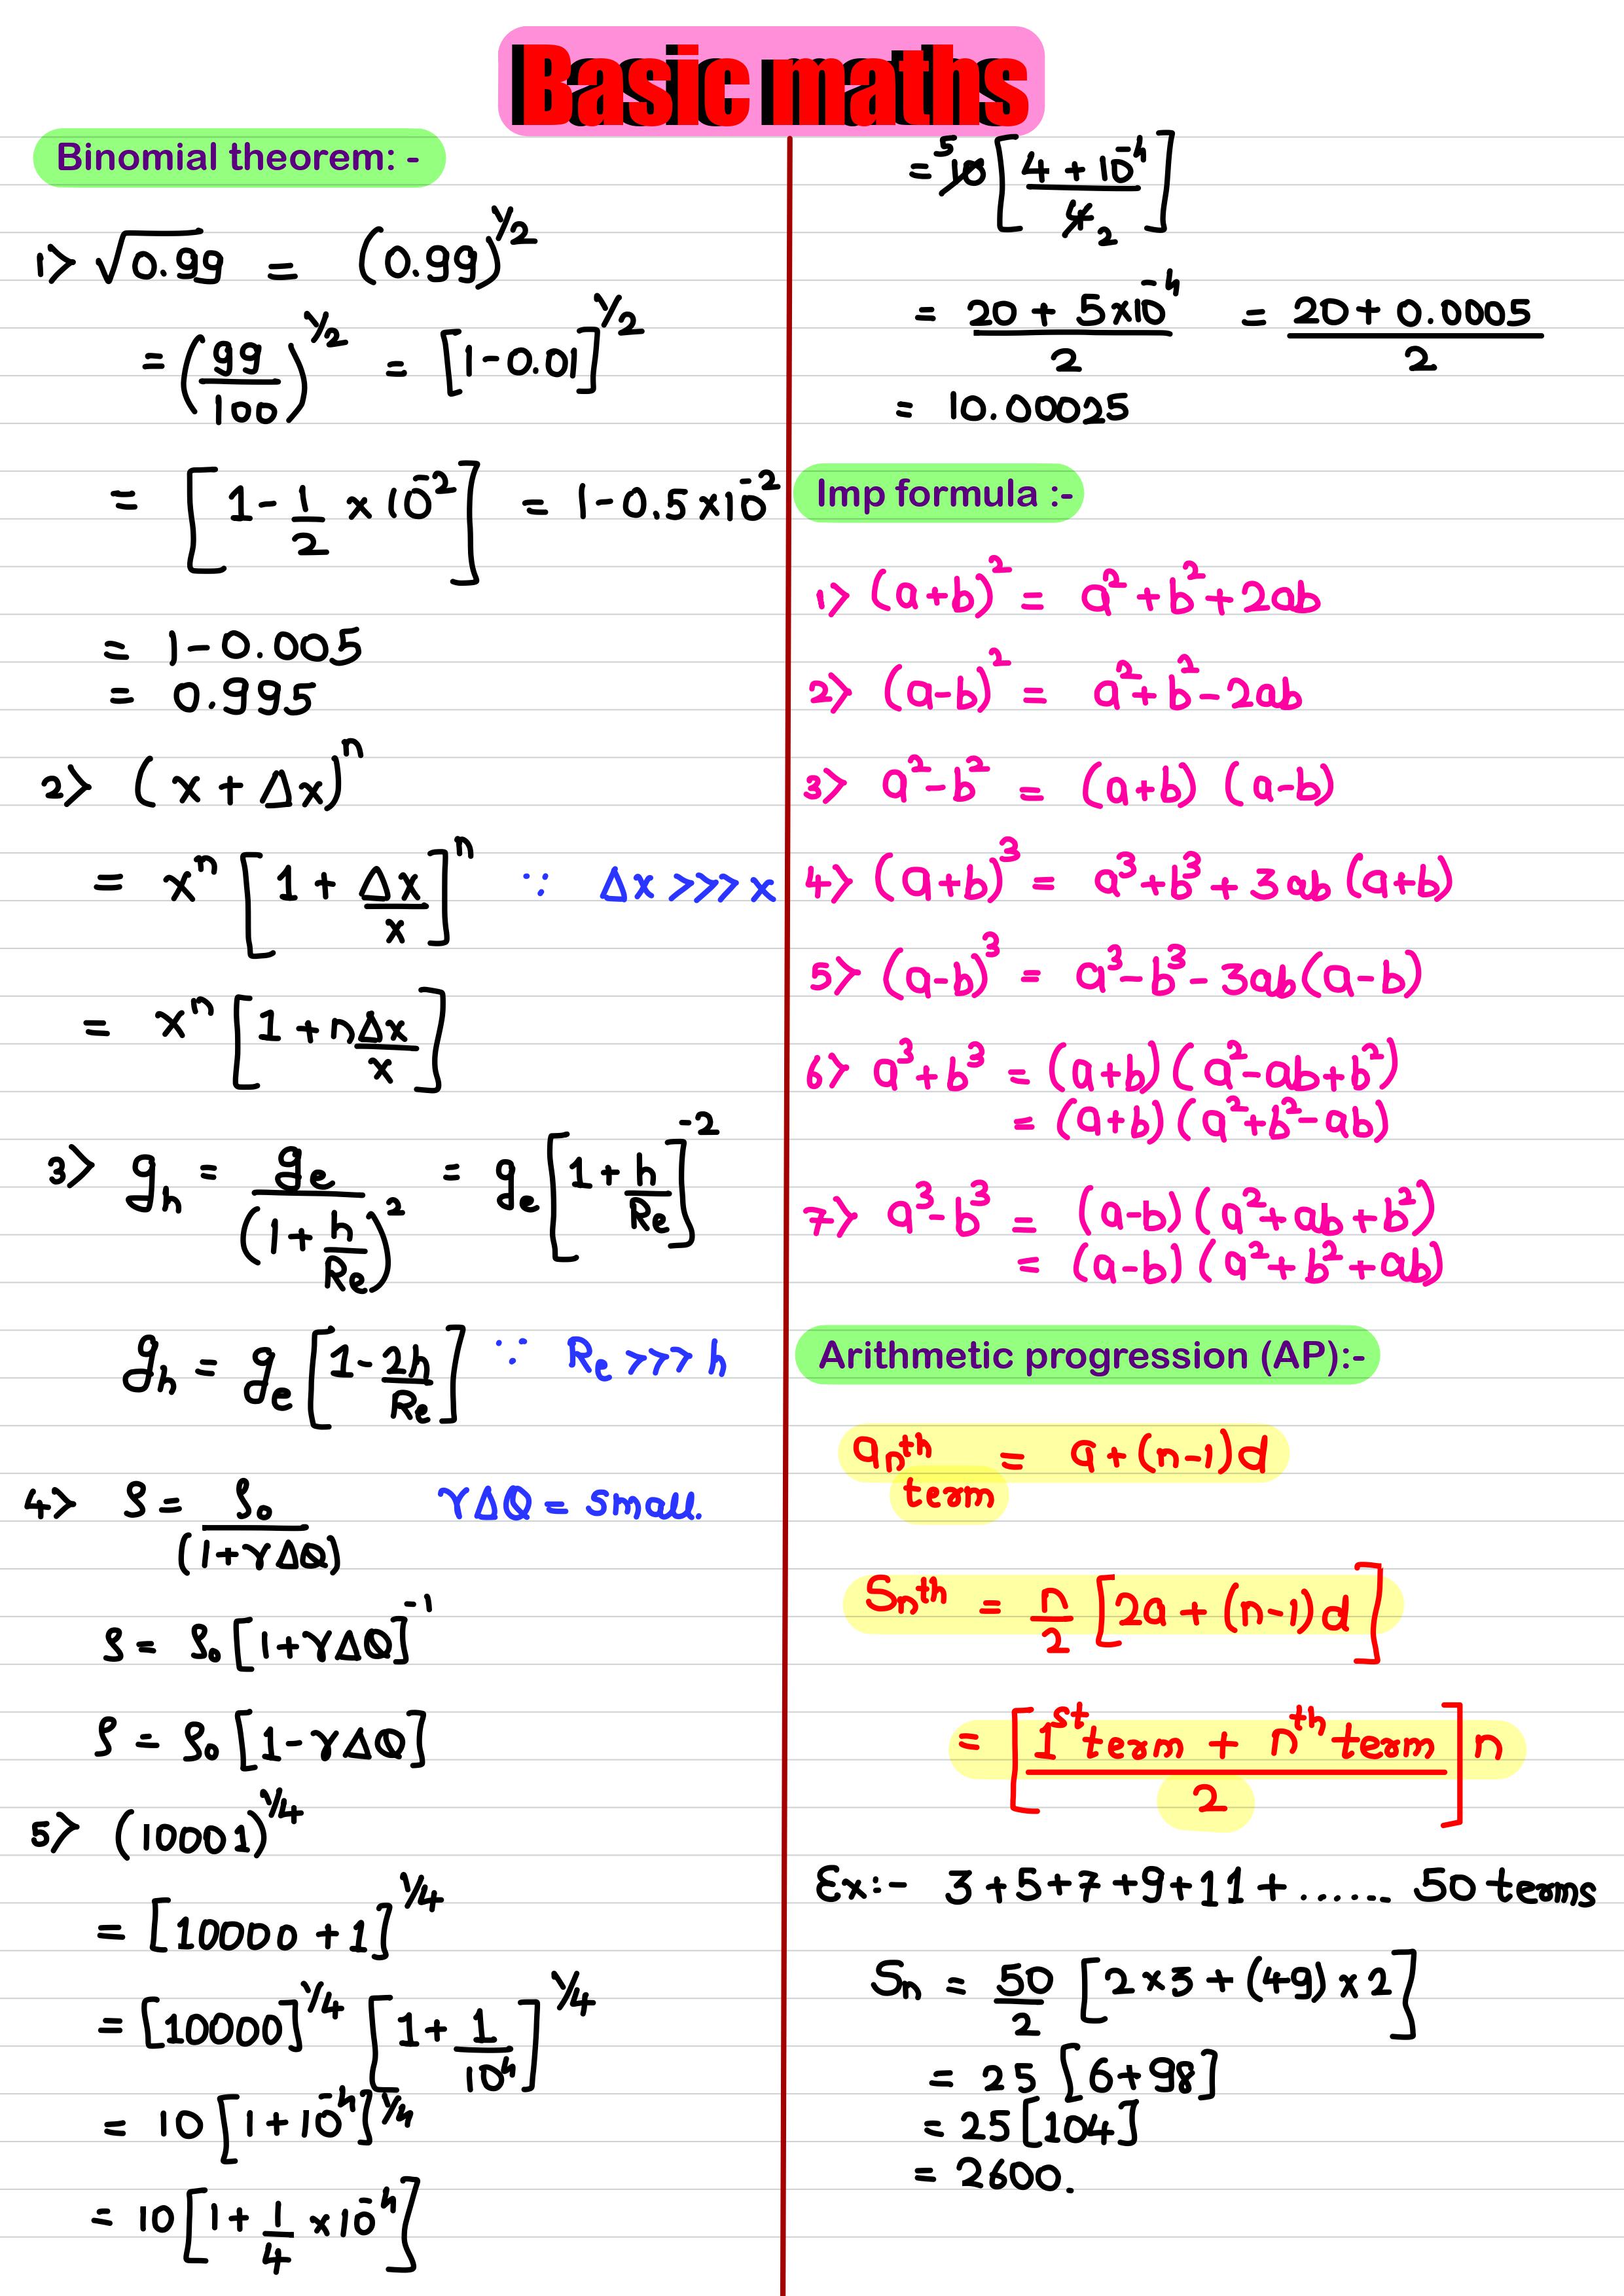 Basic maths
Binomial theorem: -
1> √0.99 = (0.99)^1/2
= (99/100)^1/2 = [1-0.01]^1/2
= [1 - 1/2 × 10^-2] = 1-0.5×10^-2
= 1-0.005
= 0.995
2> (x + Δx)^n
= x^n [1 + Δx/x]^n ∵ Δx >>> x
= x^n [1 + nΔx/x]
3> g_h = g_e/(1 + h/Re)^2 = g_e [1 + h/Re]^-2
g_h = g_e [1 - 2h/Re] ∵ Re >>> h
4> ρ = ρ₀/(1+γΔθ) γΔθ = small.
ρ = ρ₀ [1+γΔθ]^-1
ρ = ρ₀ [1-γΔθ]
5> (10001)^1/4
= [10000 + 1]^1/4
= [10000]^1/4 [1 + 1/10^4]^1/4
= 10 [1 + 10^-4]^1/4
= 10 [1 + 1/4 × 10^-4]
= 5 10 [4 + 10^-4 / 4 2]
= 20 + 5×10^-4 / 2 = 20 + 0.0005 / 2
= 10.00025
Imp formula :-
1> (a+b)^2 = a^2 + b^2 + 2ab
2> (a-b)^2 = a^2 + b^2 - 2ab
3> a^2 - b^2 = (a+b) (a-b)
4> (a+b)^3 = a^3 + b^3 + 3ab (a+b)
5> (a-b)^3 = a^3 - b^3 - 3ab (a-b)
6> a^3 + b^3 = (a+b) (a^2 - ab + b^2)
= (a+b) (a^2 + b^2 - ab)
7> a^3 - b^3 = (a-b) (a^2 + ab + b^2)
= (a-b) (a^2 + b^2 + ab)
Arithmetic progression (AP):-
a_n^th = a + (n-1)d
term
S_n^th = n/2 [2a + (n-1)d]
= [1^st term + n^th term / 2] n
Ex:- 3+5+7+9+11+ ...... 50 terms
S_n = 50/2 [2×3 + (49)×2]
= 25 [6+98]
= 25 [104]
= 2600.